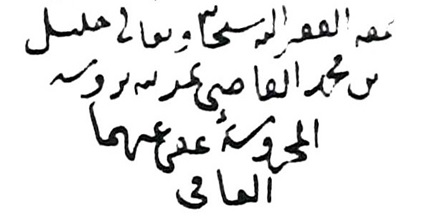 نمقه الفقير اليه سبحانه وتعالى خليل
بن محمد القاضى بمدينه بروسه
المحروسة عفى عنهما
العافى